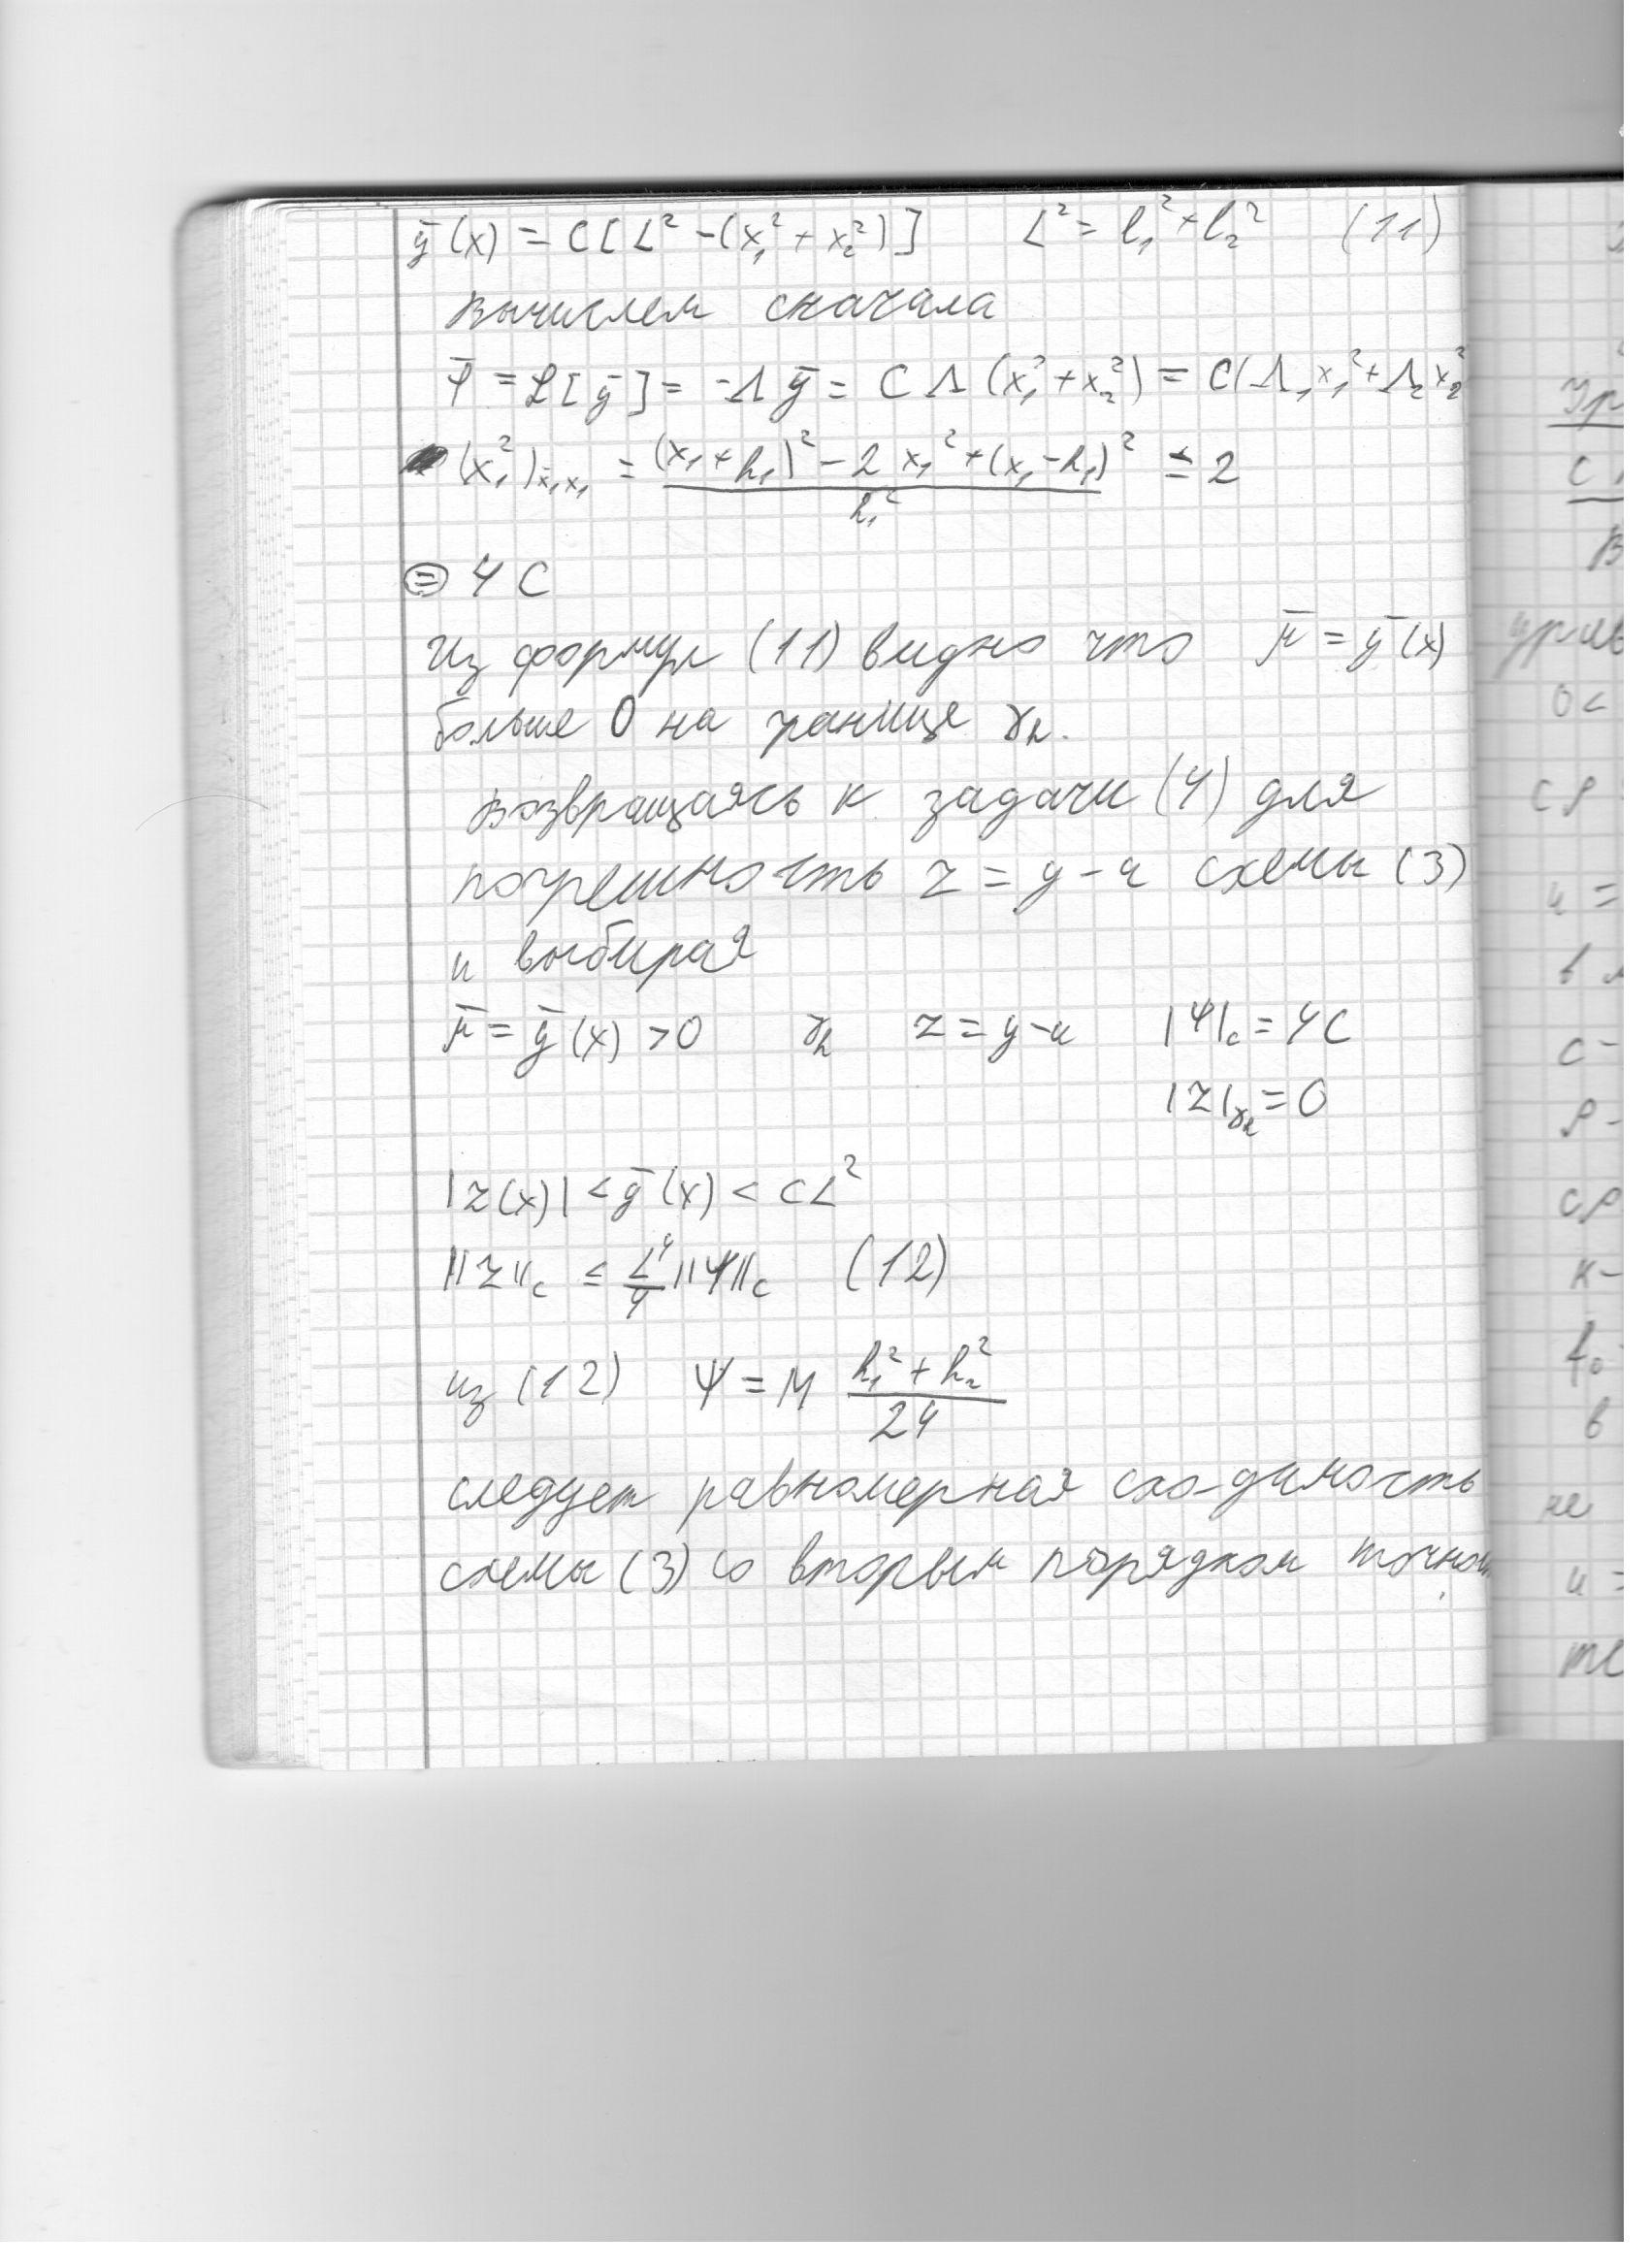 ȳ(x) = C[L² - (x₁² + x₂²)]   L² = l₁² + l₂²   (11)
вычислем сначала
φ̄ = ℒ[ȳ] = -Λȳ = CΛ(x₁² + x₂²) = C(Λ₁x₁² + Λ₂x₂²
(x₁²)x̄₁x₁ = (x₁ + h₁)² - 2x₁² + (x₁ - h₁)² / h₁² = 2
⊜ 4C
Из формул (11) видно что μ̄ = ȳ(x)
больше 0 на границе γₕ.
возвращаясь к задачи (4) для
погрешность z = y - u схемы (3)
и выбирая
μ̄ = ȳ(x) > 0   γₕ   z = y - u   |Ψ|c = 4C
|z|γₕ = 0
|z(x)| < ȳ(x) < CL²
||z||c ≤ L⁴/4 ||Ψ||c   (12)
из (12)   Ψ = M (h₁² + h₂²)/24
следует равномерная схо-димость
схемы (3) со вторым порядком точнос
Ур
с
в
0 <
сρ
u =
в
c -
ρ -
cρ
k -
f₀
в
не
u =
те